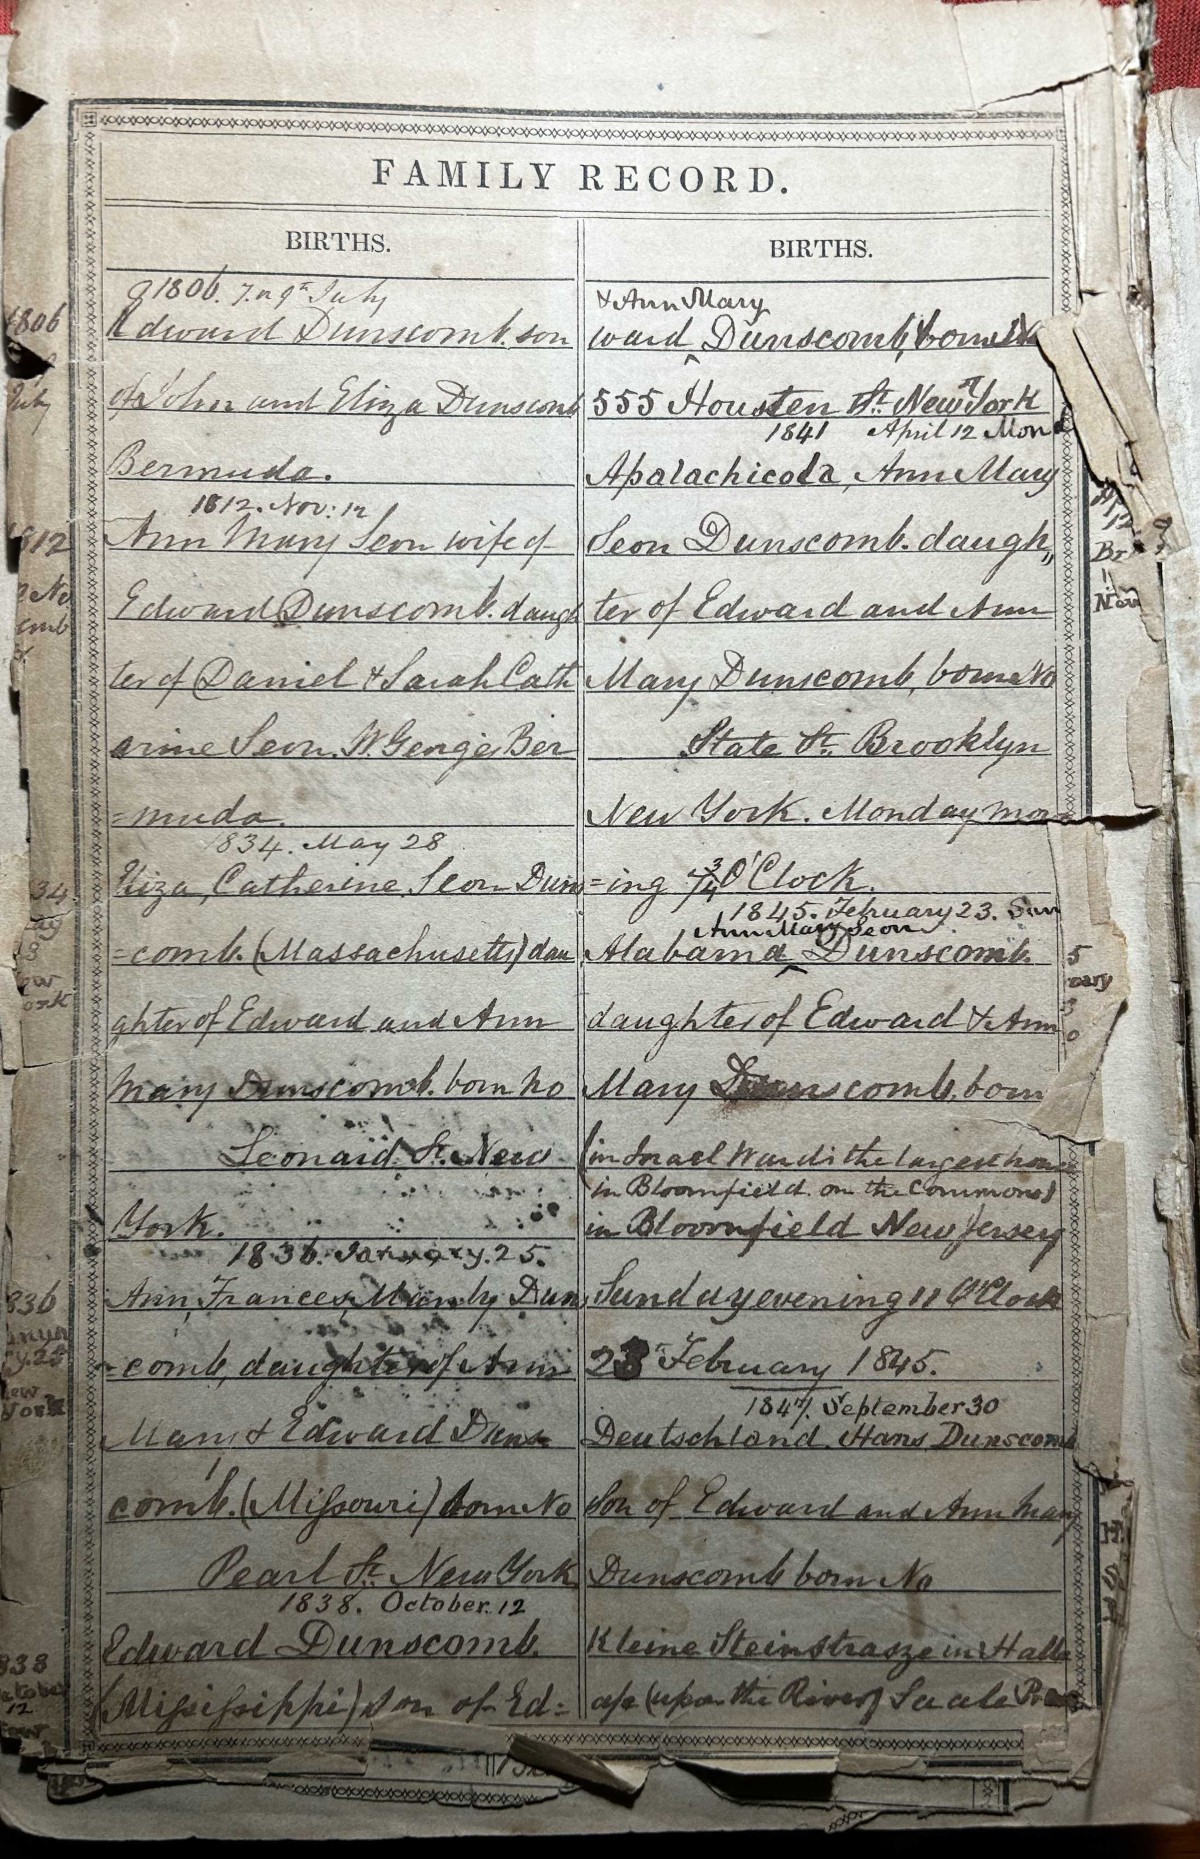 FAMILY RECORD.
BIRTHS.
1806. 7. or 9th July
Edward Dunscomb. son
of John and Eliza Dunscomb
Bermuda.
1812. Nov: 12
Ann Mary Seon wife of
Edward Dunscomb. daugh
ter of Daniel & Sarah Cath
arine Seon. St. Georges Ber
=muda.
1834. May 28
Eliza, Catherine Seon Duns
=comb. (Massachusetts) dau
ghter of Edward and Ann
Mary Dunscomb. born No
Leonard St. New
York.
1836. January. 25.
Ann, Frances, Manby Duns
=comb, daughter of Ann
Mary & Edward Duns
comb. (Missouri) born No
Pearl St. New York
1838. October. 12
Edward Dunscomb.
(Mississippi) son of Ed=
BIRTHS.
& Ann Mary
ward Dunscomb, born No
555 Housten St. New York
1841 April 12 Mond
Apalachicola, Ann Mary
Seon Dunscomb. daugh„
ter of Edward and Ann
Mary Dunscomb, born No
State St. Brooklyn
New York. Monday mor
=ing O'Clock.
1845. February 23. Sun
Ann Mary Seon
Alabama Dunscomb.
daughter of Edward & Ann
Mary Dunscomb. born
(in Israel Wards the largest house
in Bloomfield on the Commons)
in Bloomfield New Jersey
Sunday evening 11 O'Clock
23 February 1845.
1847. September 30
Deutschland. Hans Dunscomb
son of Edward and Ann Mary
Dunscomb born No
Kleine Steinstrasze in Halle
(upon the River) Saale
1806
July
1812
34
836
New
York
838
12
12
Nov
5
3
0